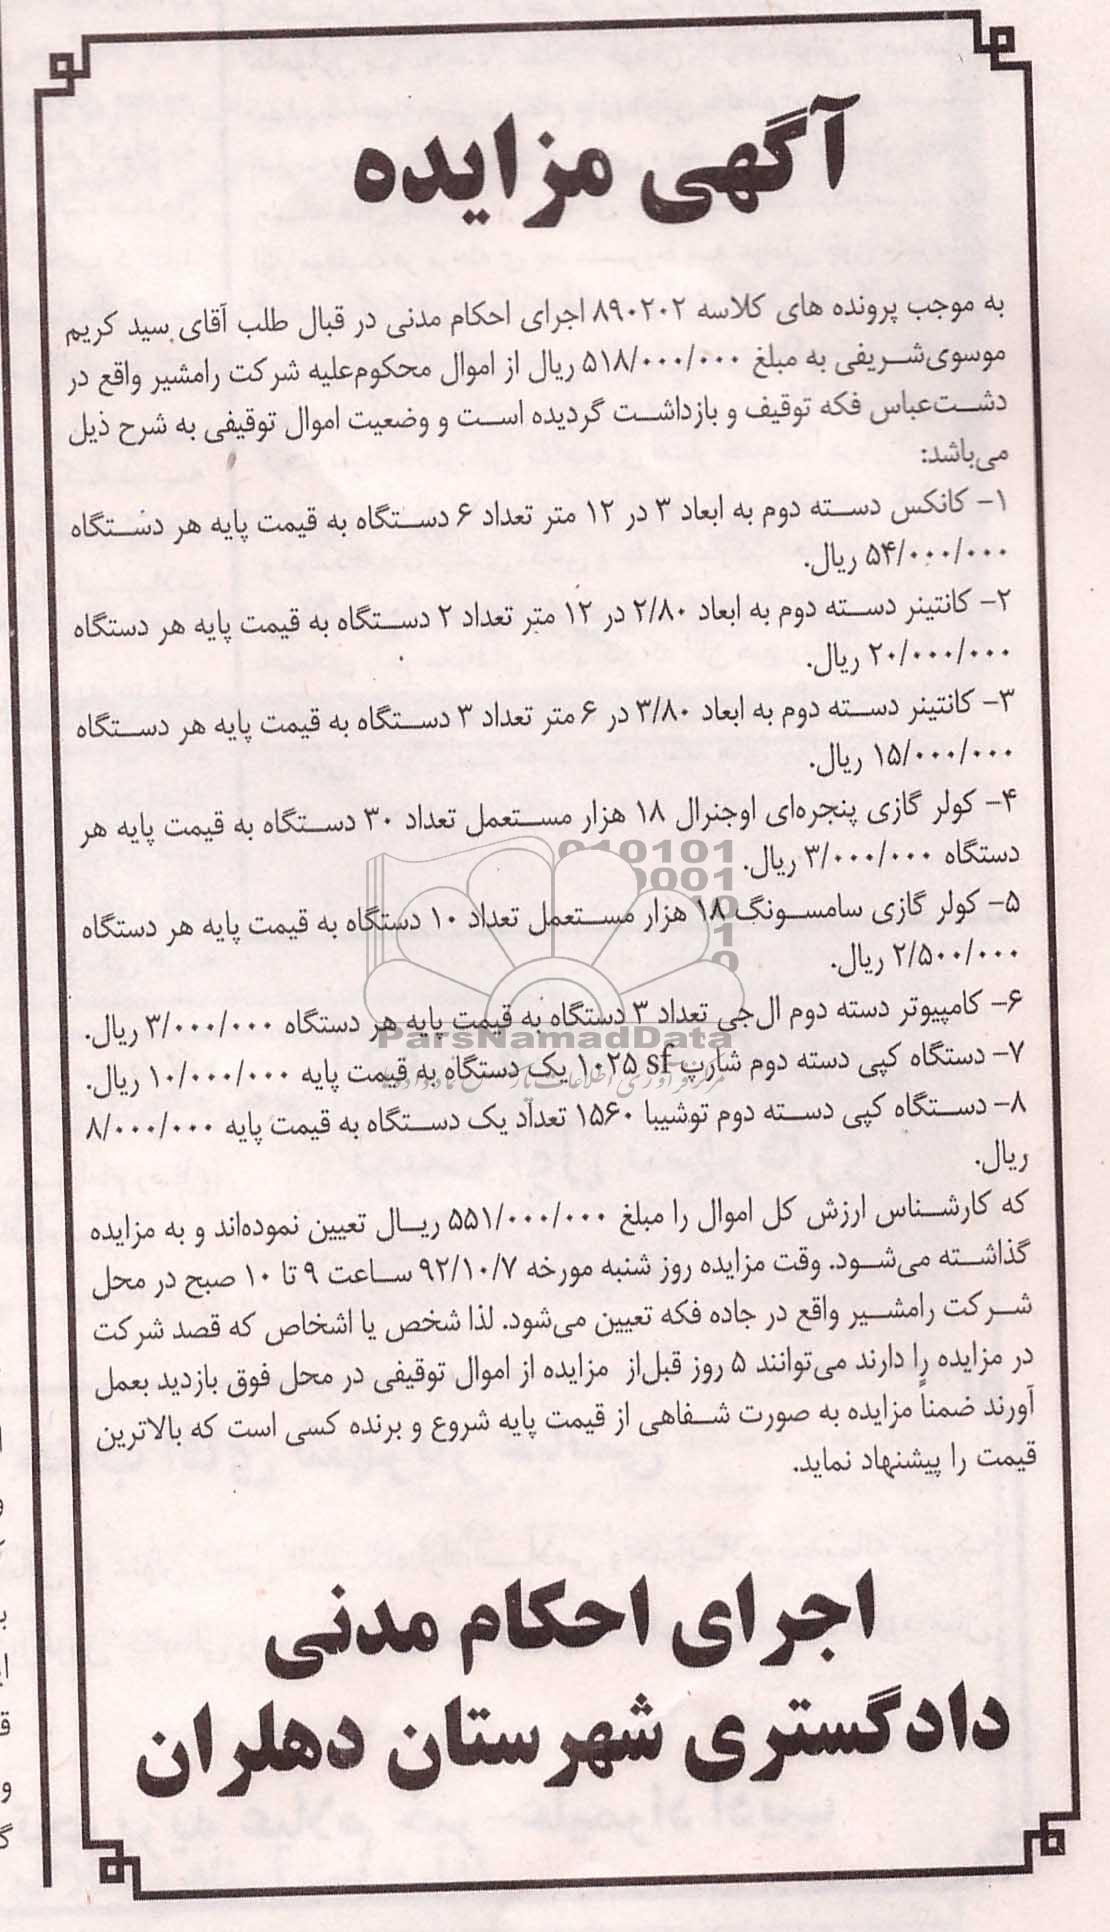 آگهی مزایده
به موجب پرونده های کلاسه ۸۹۰۲۰۲ اجرای احکام مدنی در قبال طلب آقای سید کریم
موسوی‌شریفی به مبلغ ۵۱۸/۰۰۰/۰۰۰ ریال از اموال محکوم‌علیه شرکت رامشیر واقع در
دشت‌عباس فکه توقیف و بازداشت گردیده است و وضعیت اموال توقیفی به شرح ذیل
می‌باشد:
۱- کانکس دسته دوم به ابعاد ۳ در ۱۲ متر تعداد ۶ دستگاه به قیمت پایه هر دستگاه
۵۴/۰۰۰/۰۰۰ ریال.
۲- کانتینر دسته دوم به ابعاد ۲/۸۰ در ۱۲ متر تعداد ۲ دستگاه به قیمت پایه هر دستگاه
۲۰/۰۰۰/۰۰۰ ریال.
۳- کانتینر دسته دوم به ابعاد ۳/۸۰ در ۶ متر تعداد ۳ دستگاه به قیمت پایه هر دستگاه
۱۵/۰۰۰/۰۰۰ ریال.
۴- کولر گازی پنجره‌ای اوجنرال ۱۸ هزار مستعمل تعداد ۳۰ دستگاه به قیمت پایه هر
دستگاه ۳/۰۰۰/۰۰۰ ریال.
۵- کولر گازی سامسونگ ۱۸ هزار مستعمل تعداد ۱۰ دستگاه به قیمت پایه هر دستگاه
۲/۵۰۰/۰۰۰ ریال.
۶- کامپیوتر دسته دوم ال‌جی تعداد ۳ دستگاه به قیمت پایه هر دستگاه ۳/۰۰۰/۰۰۰ ریال.
ParsNamadData
۷- دستگاه کپی دسته دوم شارپ sf ۱۰۲۵ یک دستگاه به قیمت پایه ۱۰/۰۰۰/۰۰۰ ریال.
۸- دستگاه کپی دسته دوم توشیبا ۱۵۶۰ تعداد یک دستگاه به قیمت پایه ۸/۰۰۰/۰۰۰
ریال.
که کارشناس ارزش کل اموال را مبلغ ۵۵۱/۰۰۰/۰۰۰ ریال تعیین نموده‌اند و به مزایده
گذاشته می‌شود. وقت مزایده روز شنبه مورخه ۹۲/۱۰/۷ ساعت ۹ تا ۱۰ صبح در محل
شرکت رامشیر واقع در جاده فکه تعیین می‌شود. لذا شخص یا اشخاص که قصد شرکت
در مزایده را دارند می‌توانند ۵ روز قبل‌از مزایده از اموال توقیفی در محل فوق بازدید بعمل
آورند ضمناً مزایده به صورت شفاهی از قیمت پایه شروع و برنده کسی است که بالاترین
قیمت را پیشنهاد نماید.
اجرای احکام مدنی
دادگستری شهرستان دهلران